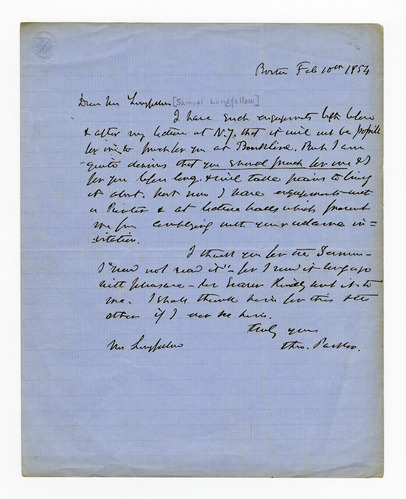 Boston Feb 10th 1854
Dear Mr Longfellow [Samuel Longfellow]
I have such engagements both before
& after my lecture at N.Y. that it will not be possible
for me to preach for you at Brooklin. But I am
quite desirous that you should preach for me & I
for you before long, & will take pains to bring
it about. Just now I have engagements with
a Parker & at lecture halls which prevent
me from complying with your welcome in-
vitation.
I thank you for the Sermon —
I "need not read it" — for I read it long ago
with pleasure — for Searer Kindly lent it to
me. I shall thank him for this the
other if I ever see him.
Truly yours
Mr Longfellow Theo. Parker.